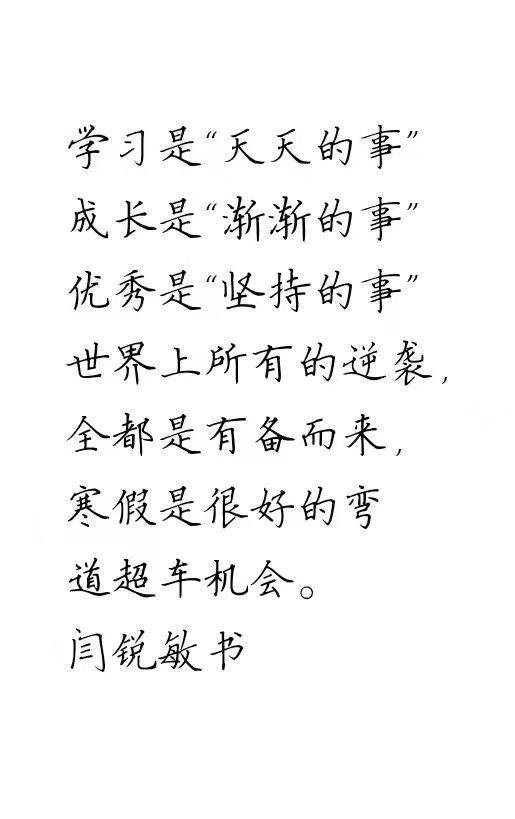 学习是“天天的事”
成长是“渐渐的事”
优秀是“坚持的事”
世界上所有的逆袭，
全都是有备而来，
寒假是很好的弯
道超车机会。
闫锐敏书